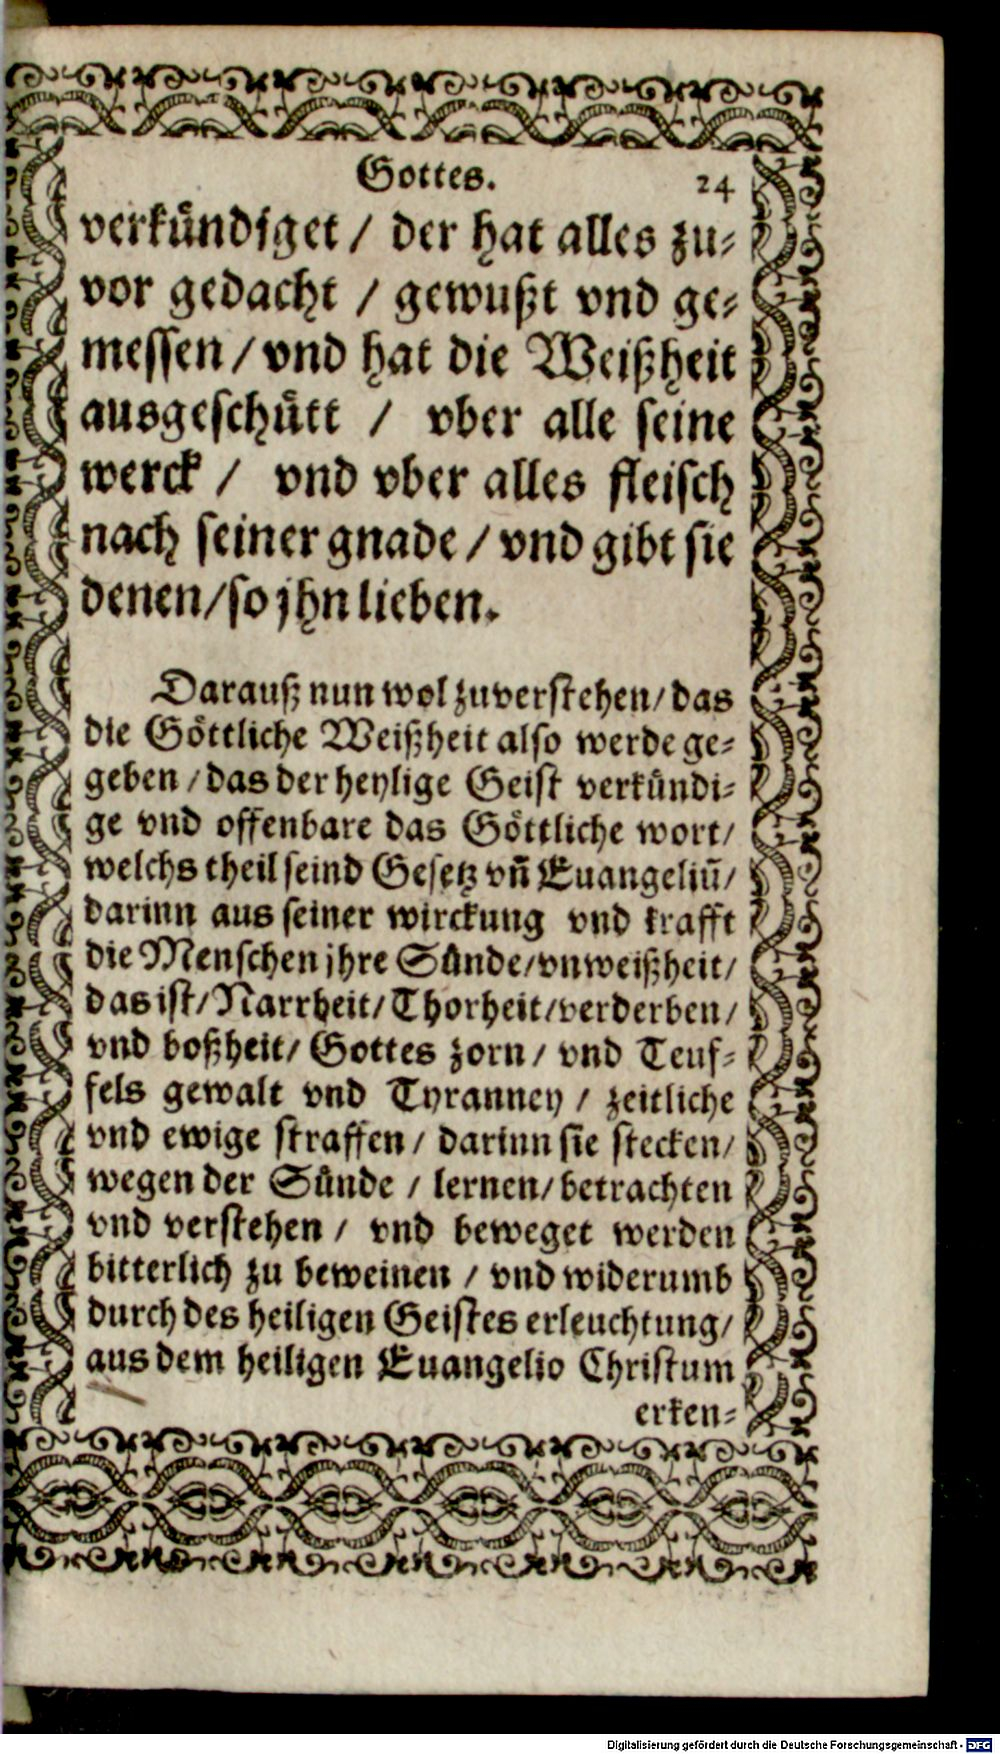 Gottes. 24
verkündiget / der hat alles zu⸗
vor gedacht / gewußt vnd ge⸗
messen / vnd hat die Weißheit
ausgeschütt / vber alle seine
werck / vnd vber alles fleisch
nach seiner gnade / vnd gibt sie
denen / so jhn lieben.
Darauß nun wol zuverstehen / das
die Göttliche Weißheit also werde ge⸗
geben / das der heylige Geist verkündi⸗
ge vnd offenbare das Göttliche wort /
welchs theil seind Gesetz vn̄ Euangeliū /
darinn aus seiner wirckung vnd krafft
die Menschen jhre Sünde / vnweißheit /
das ist / Narrheit / Thorheit / verderben /
vnd boßheit / Gottes zorn / vnd Teuf⸗
fels gewalt vnd Tyranney / zeitliche
vnd ewige straffen / darinn sie stecken /
wegen der Sünde / lernen / betrachten
vnd verstehen / vnd beweget werden
bitterlich zu beweinen / vnd widerumb
durch des heiligen Geistes erleuchtung /
aus dem heiligen Euangelio Christum
erken⸗
Digitalisierung gefördert durch die Deutsche Forschungsgemeinschaft - DFG